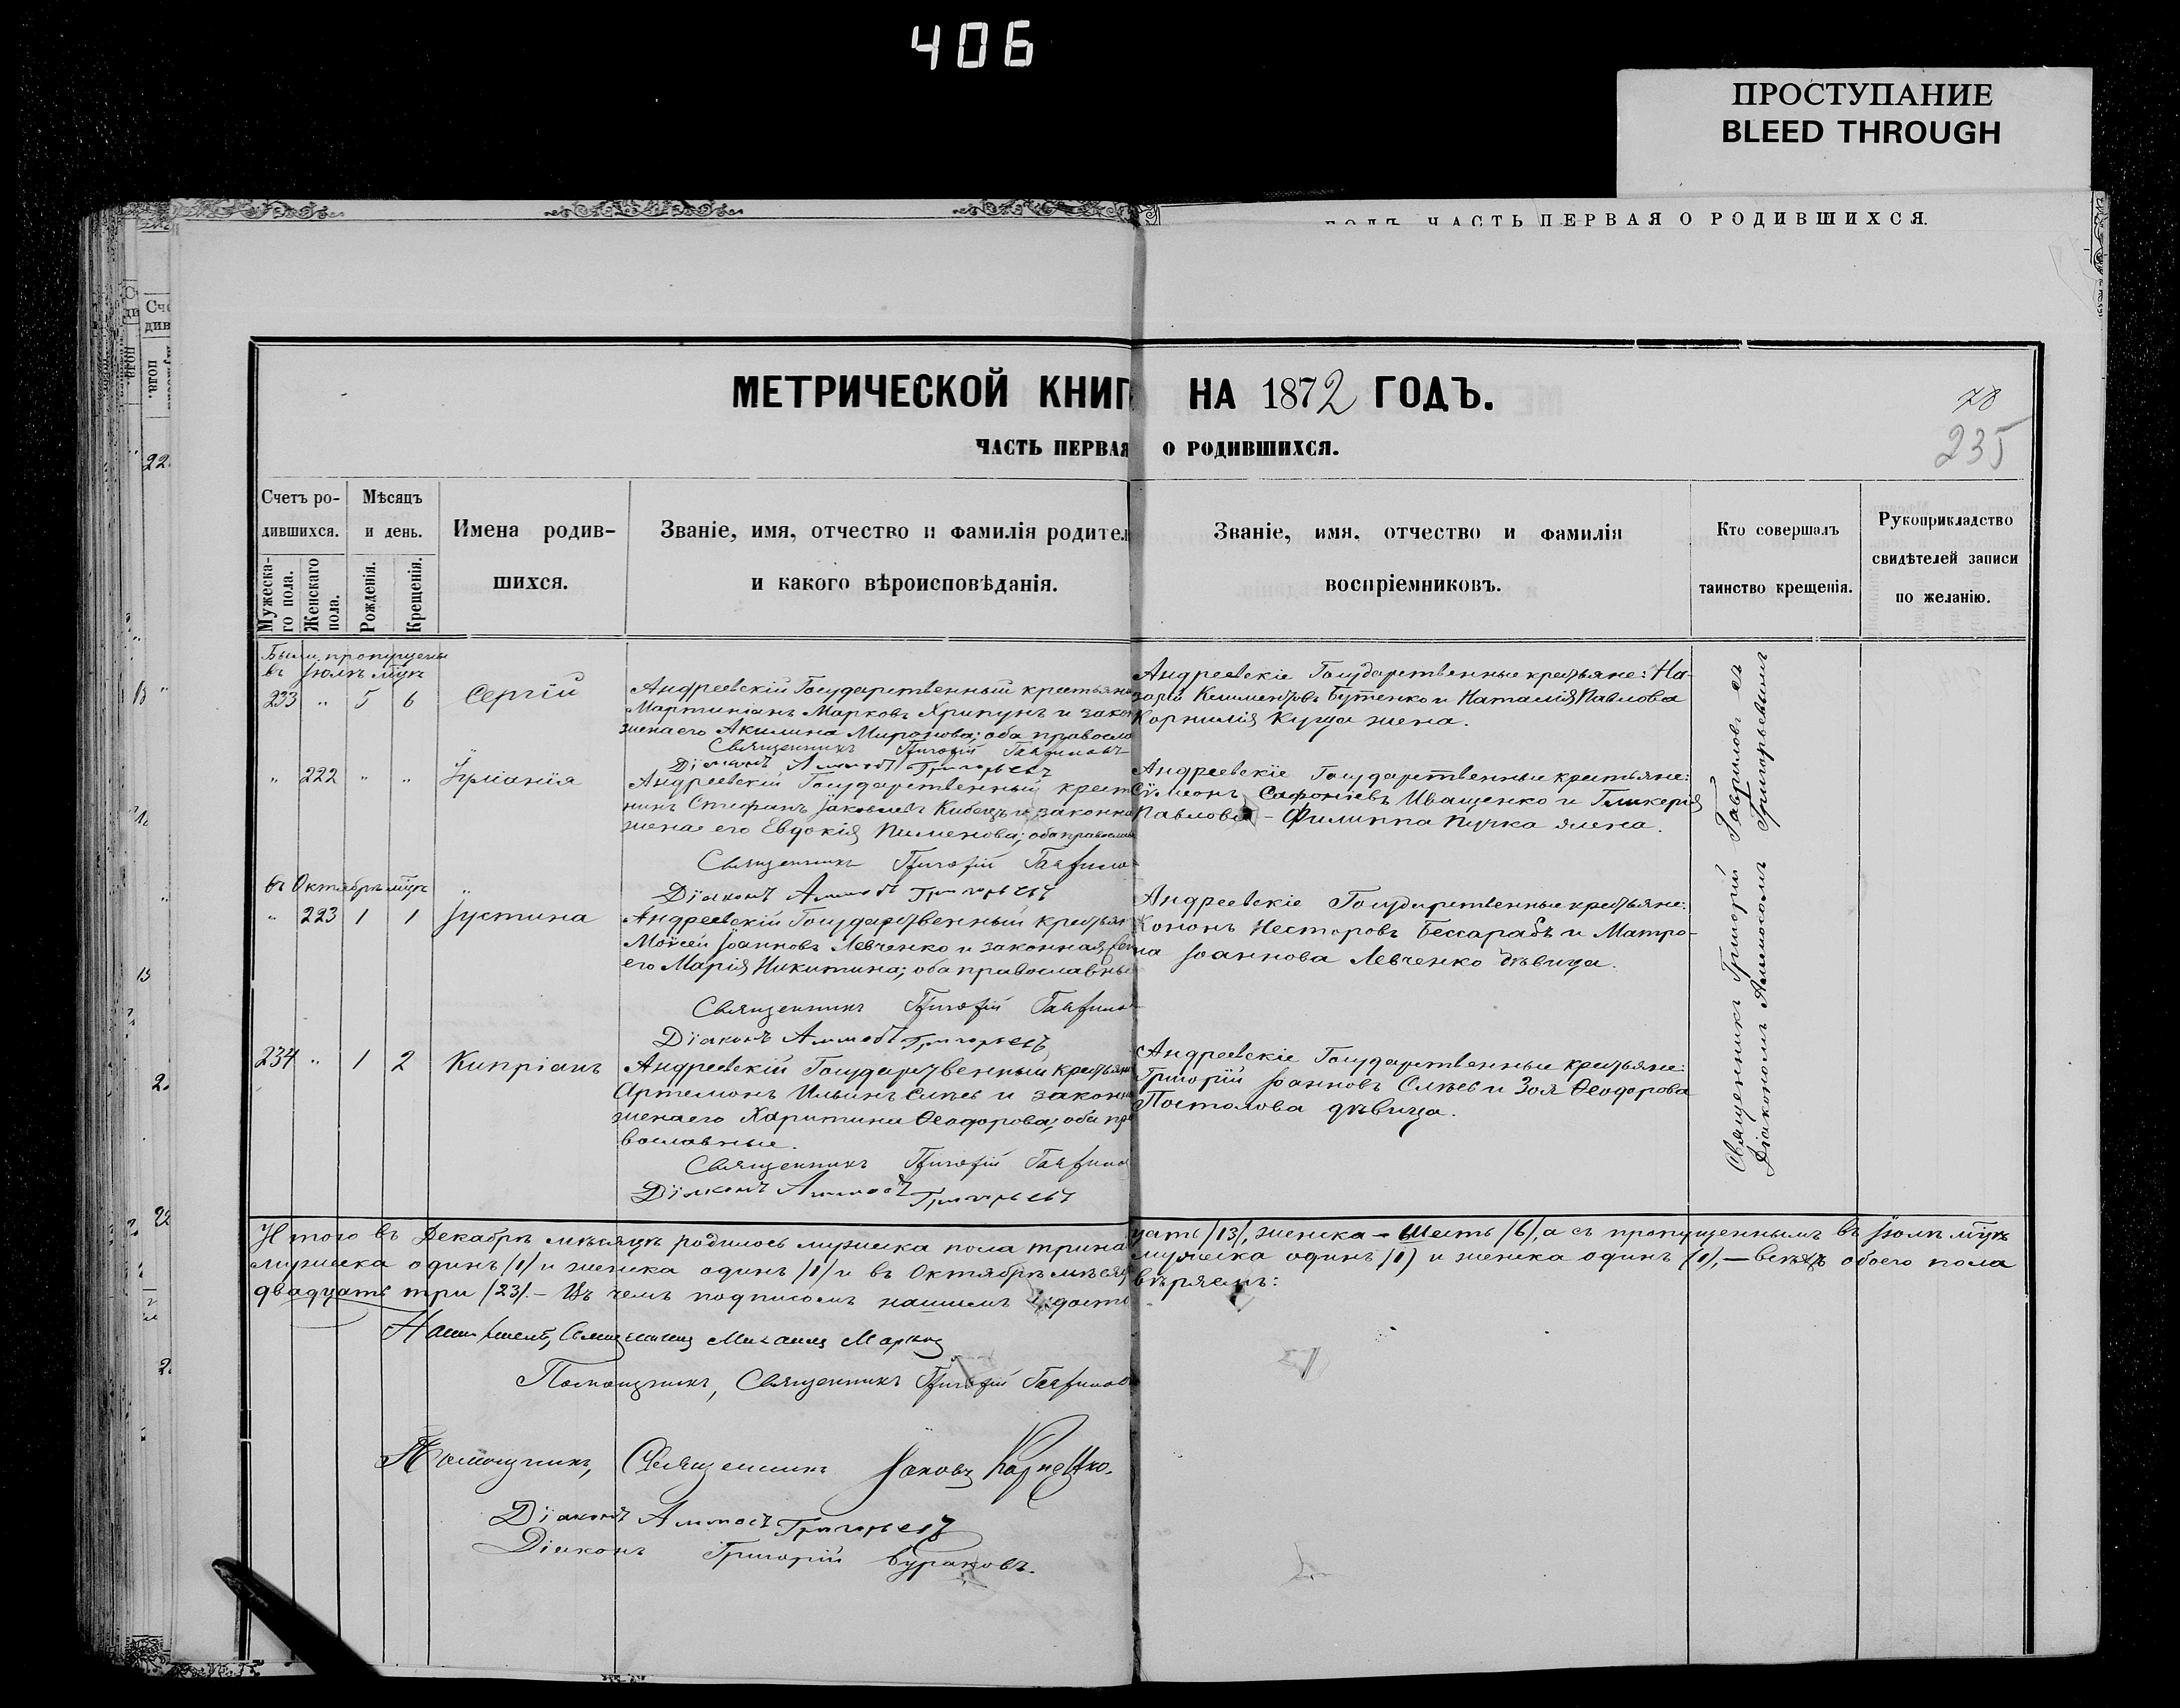 406
ПРОСТУПАНИЕ
BLEED THROUGH
ЧАСТЬ ПЕРВАЯ О РОДИВШИХСЯ.
МЕТРИЧЕСКОЙ КНИГ НА 1872 ГОДЪ.
78
235
ЧАСТЬ ПЕРВАЯ О РОДИВШИХСЯ.
Счетъ ро-
дившихся.
Мужеска-
го пола.
Женскаго
пола.
Мѣсяцъ
и день.
Рожденія.
Крещенія.
Имена родив-
шихся.
Званіе, имя, отчество и фамилія родител
и какого вѣроисповѣданія.
Званіе, имя, отчество и фамилія
воспріемниковъ.
Кто совершалъ
таинство крещенія.
Рукоприкладство
свидѣтелей записи
по желанію.
Были пропущены
въ Іюлѣ м̃цѣ
233 " 5 6 Сергій
Андреевскій Государственный крестьян
Мартиніанъ Марковъ Хрипунъ и закон
жена его Акилина Миронова; оба правосла
Священникъ Григорій Гаврилов
Діаконъ Аммосъ Григорьевъ
Андреевскіе Государственные крестьяне: На-
зарій Климентовъ Бутенко и Наталія Павлова
Корнилія Куща жена.
" 222 " " Іуліанія
Андреевскій Государственный крест
нинъ Стефанъ Іаковлевъ Кибецъ и законна
жена его Евдокія Пименова; оба правосла
Священникъ Григорій Гаврило
Діаконъ Аммосъ Григорьевъ
Андреевскіе Государственные крестьяне:
Сѵмеонъ Сафоніевъ Иващенко и Гликерія
Павлова - Филиппа Пучка жена.
въ Октябрѣ м̃цѣ
" 223 1 1 Іустина
Андреевскій Государственный крестьян
Моѵсей Іоанновъ Левченко и законная
его Марія Никитина; оба православны
Священникъ Григорій Гаврило
Діаконъ Аммосъ Григорьевъ
Андреевскіе Государственные крестьяне:
Кононъ Несторовъ Бессарабъ и Матро-
на Іоаннова Левченко дѣвица.
234 " 1 2 Кипріанъ
Андреевскій Государственный крестьян
Артемонъ Ильинъ Слѣев и законна
жена его Харитина Ѳеодорова; оба пра
вославные.
Священникъ Григорій Гаврило
Діаконъ Аммосъ Григорьевъ
Андреевскіе Государственные крестьяне:
Григорій Іоанновъ Слѣев и Зоя Ѳеодорова
Постолова дѣвица.
Священникъ Григорій Гавриловъ съ
Діакономъ Аммосомъ Григорьевымъ
Итого въ Декабрѣ мѣсяцѣ родилось мужеска пола трина цать /13/, женска - Шесть /6/, а съ пропущеннымъ въ Іюлѣ м̃цѣ
мужеска одинъ /1/ и женска одинъ /1/ и въ Октябрѣ мѣсяц мужеска одинъ /1/ и женска одинъ /1/, - всѣхъ обоего пола
двадцать три /23/. - Въ чемъ подписомъ нашимъ и досто вѣряемъ:
Настоятель, Священникъ Михаилъ
Помощникъ, Священникъ Григорій Гаврилов
Помощникъ, Священникъ Іаковъ
Діаконъ Аммосъ Григорьевъ
Діаконъ Григорій Бураковъ.